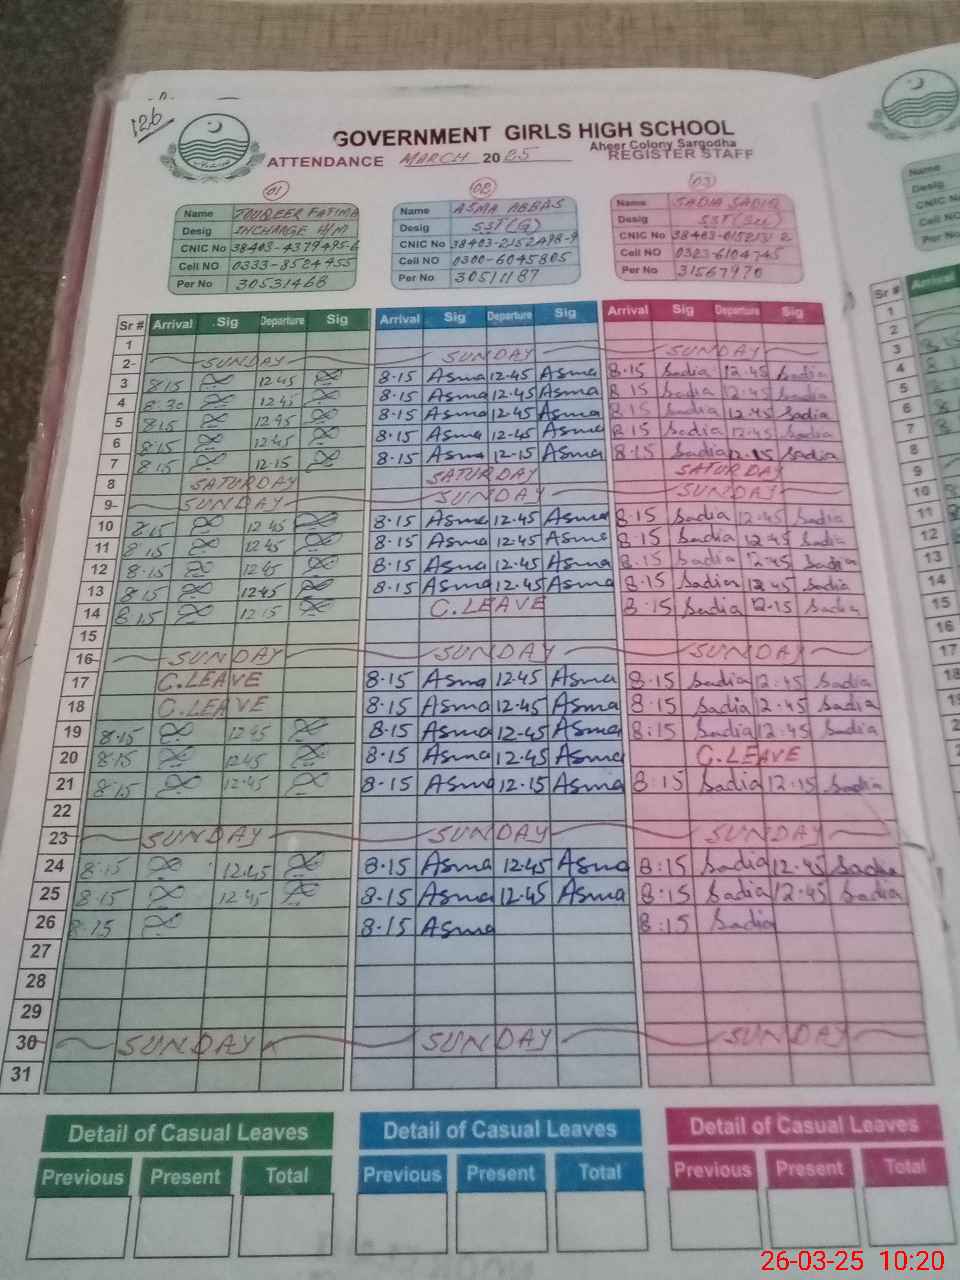 126
GOVERNMENT GIRLS HIGH SCHOOL
Aheer Colony Sargodha
ATTENDANCE MARCH 2025 REGISTER STAFF
01 02 03
Name TOUQEER FATIMA Name ASMA ABBAS Name SADIA SADIQ
Desig INCHARGE H/M Desig SST(G) Desig SST(Sci)
CNIC No 38403-4379495-6 CNIC No 38403-2152498-9 CNIC No 38403-0152131 2
Cell NO 0333-8524455 Cell NO 0300-6045805 Cell NO 0323-6104745
Per No 30531468 Per No 30511187 Per No 31567970
Sr # Arrival Sig Departure Sig Arrival Sig Departure Sig Arrival Sig Departure Sig
1
2 SUNDAY SUNDAY SUNDAY
3 8.15 12.45 8.15 Asma 12.45 Asma 8.15 Sadia 12.45 Sadia
4 8.30 12.45 8.15 Asma 12.45 Asma 8.15 Sadia 12.45 Sadia
5 8.15 12.45 8.15 Asma 12.45 Asma 8.15 Sadia 12.45 Sadia
6 8.15 12.45 8.15 Asma 12.45 Asma 8.15 Sadia 12.45 Sadia
7 8.15 12.15 8.15 Asma 12.15 Asma 8.15 Sadia 12.15 Sadia
8 SATURDAY SATURDAY SATURDAY
9 SUNDAY SUNDAY SUNDAY
10 8.15 12.45 8.15 Asma 12.45 Asma 8.15 Sadia 12.45 Sadia
11 8.15 12.45 8.15 Asma 12.45 Asma 8.15 Sadia 12.45 Sadia
12 8.15 12.45 8.15 Asma 12.45 Asma 8.15 Sadia 12.45 Sadia
13 8.15 12.45 8.15 Asma 12.45 Asma 8.15 Sadia 12.45 Sadia
14 8.15 12.15 C.LEAVE 8:15 Sadia 12.15 Sadia
15
16 SUNDAY SUNDAY SUNDAY
17 C.LEAVE 8.15 Asma 12.45 Asma 8:15 Sadia 12.45 Sadia
18 C.LEAVE 8.15 Asma 12.45 Asma 8:15 Sadia 12.45 Sadia
19 8.15 12.45 8.15 Asma 12.45 Asma 8:15 Sadia 12.45 Sadia
20 8.15 12.45 8.15 Asma 12.45 Asma C.LEAVE
21 8:15 12.45 8.15 Asma 12.15 Asma 8:15 Sadia 12:15 Sadia
22
23 SUNDAY SUNDAY SUNDAY
24 8.15 12.45 8.15 Asma 12.45 Asma 8:15 Sadia 12.45 Sadia
25 8.15 12.45 8.15 Asma 12.45 Asma 8:15 Sadia 12.45 Sadia
26 8.15 8.15 Asma 8:15 Sadia
27
28
29
30 SUNDAY SUNDAY SUNDAY
31
Detail of Casual Leaves Detail of Casual Leaves Detail of Casual Leaves
Previous Present Total Previous Present Total Previous Present Total
Name
Desig
CNIC
Cell NO
Per No
Sr # Arrival
1
2
3
4
5
6
7
8
9
10
11
12
13
14
15
16
17
18
26-03-25 10:20